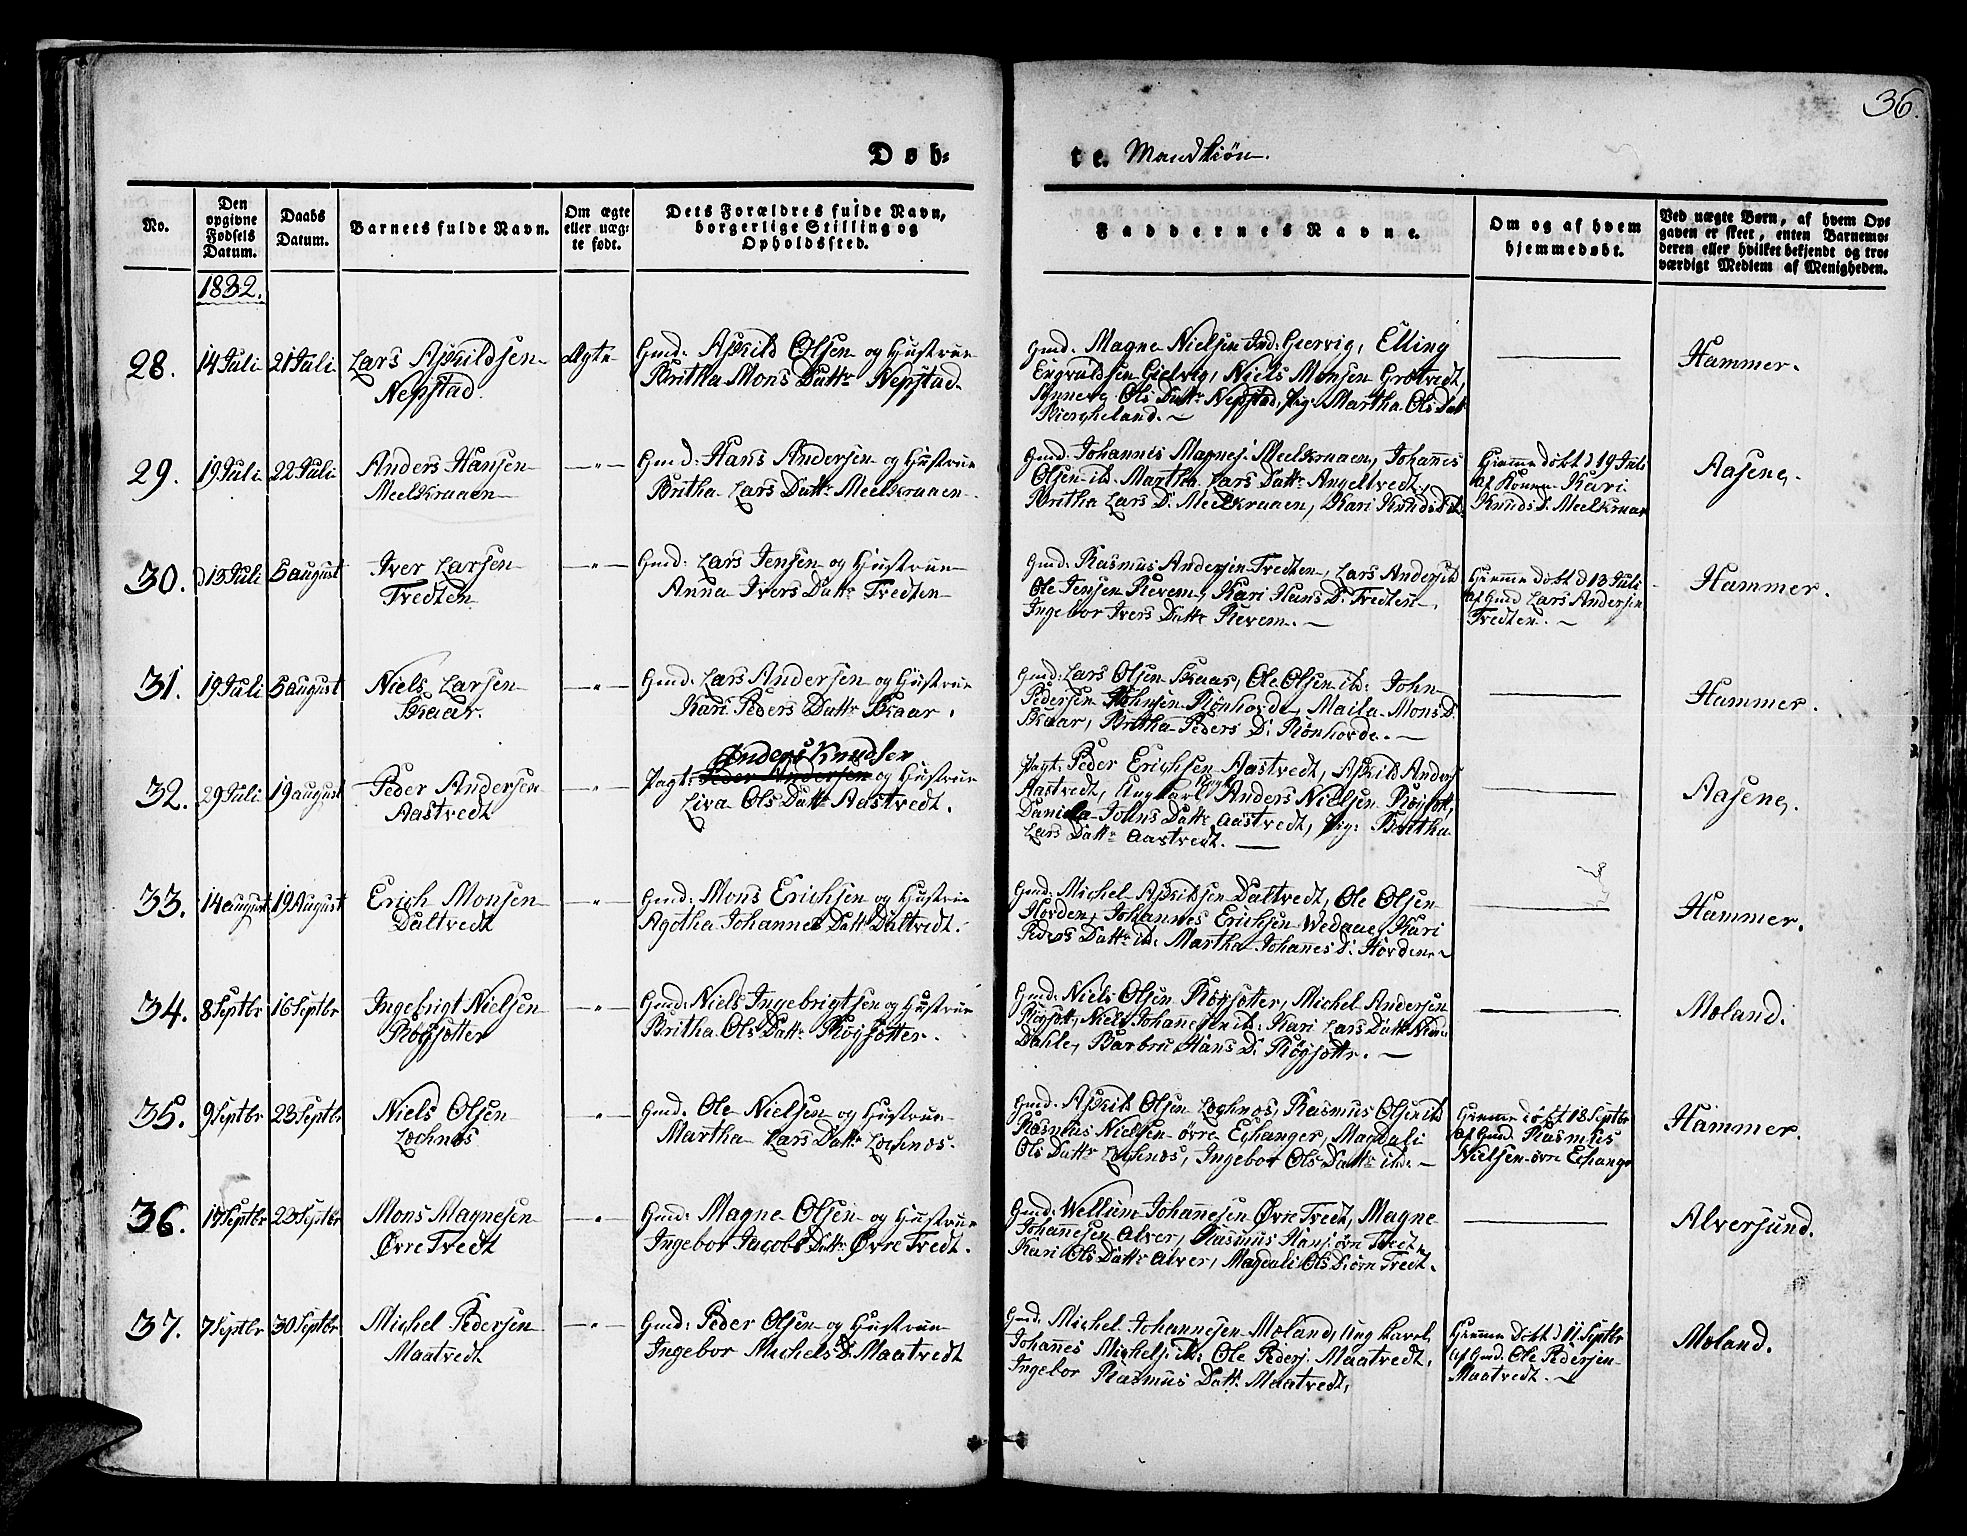 36.
Døb-
te. Mandkiøn.
No.
Den opgivne Fødsels Datum.
Daabs Datum.
Barnets fulde Navn.
Om ægte eller uægte født.
Dets Forældres fulde Navn, borgerlige Stilling og Opholdssted.
Faddernes Navne.
Om og af hvem hjemmedøbt.
Ved uægte Børn, af hvem Opgaven er skeet, enten Barnemoderen eller hvilket bekjendt og troværdigt Medlem af Menigheden.
1832.
28. 14 Juli 21 Juli Lars Askildsen Ægte Gmd: Askild Olsen og Hustrue
Nepstad. Britha Mons Datt: Nepstad.
Gmd: Magne Nielsen Ind: Giervig, Elling
Gielvig, Niels Monsen Grotvedt,
Ols Datt: Nepstad, Pig: Martha Ols Datt
Biergheland. ~
— Hammer.
29. 19 Juli 22 Juli Anders Hansen —"— Gmd: Hans Andersen og Hustrue
Meelkraaen Britha Lars Datt: Meelkraaen
Gmd: Johannes Magnes. Meelkraaen, Johannes
Olsen ibd. Martha Lars Datt: Angeltvedt,
Britha Lars D: Meelkraaen, Kari Knuds D. ibd:
Hiemme døbt d 19 Juli
af Konen Kari
Knuds D. Meelkraaen
Aasene.
30. d 13 Juli 5 august Iver Larsen —"— Gmd: Lars Jensen og Hustrue
Tvedten Anna Ivers Datt: Tvedten
Gmd: Rasmus Andersen Tvedten, Lars Andersen ibd
Ole Jensen Revem, Kari Hans D: Tvedten,
Ingebor Ivers Datt: Revem. ~
Hiemme døbt d 13 Juli
af Gmd Lars Andersen
Tvedten. ~
Hammer.
31. 19 Juli 5 august Niels Larsen —"— Gmd: Lars Andersen og Hustrue
Skaar. Kari Peders Datt: Skaar.
Gmd: Lars Olsen Skaar, Ole Olsen ibd: John
Pedersen Rønhorde, Maila Mons D.
Skaar, Britha Peders D: Rønhorde. ~
— Hammer.
Anders Knudsen
32. 29 Juli 19 august Peder Andersen —"— Pagt: Peder Andersen og Hustrue
Aastvedt Liva Ols Datt: Aastvedt.
Pagt: Peder Erichsen Aastvedt, Askild Anders
Aastvedt, Ung Karl Anders Nielsen
Daniela Johns Datt: Aastvedt, Pig: Britha
Lars Datt: Aastvedt. —
— Aasene.
33. 14 august 19 August Erich Monsen —"— Gmd: Mons Erichsen og Hustrue
Daltvedt Agotha Johannes Datt: Daltvedt.
Gmd: Michel Askildsen Daltvedt, Ole Olsen
Horden, Johannes Erichsen Wedaae, Kari
Peders Datt: ibd: Martha Johannes D: Horden. ~
— Hammer.
34. 8 Septbr 16 Septbr Ingebrigt Nielsen —"— Gmd: Niels Ingebrigtsen og Hustrue
Røysetter Britha Ols Datt: Røysetter.
Gmd: Niels Olsen Røysetter, Michel Andersen
Niels Johannesen ibd: Kari Lars Datt:
Dahle, Barbru Hans D. Røysettr. ~
— Moland.
35. 9 Septbr 23 Septbr Niels Olsen —"— Gmd: Ole Nielsen og Hustrue
Lochnæs Martha Lars Datt: Lochnæs.
Gmd: Askild Olsen Lochnæs, Rasmus Olsen ibd
Rasmus Nielsen øvre Echanger, Magdali
Ols Datt: Lochnæs, Ingebor Ols Datt: ibd: ~
Hiemme døbt 18 Septbr
af Gmd. Rasmus
Nielsen øvre Echange
Hammer.
36. 14 Septbr 23 Septbr Mons Magnesen —"— Gmd: Magne Olsen og Hustrue
Øvre Tvedt Ingebor Jacobs Datt: Øvre Tvedt.
Gmd: Wellum Johannesen Øvre Tvedt, Magne
Johannesen Alver, Rasmus Hans. øvre Tvedt
Kari Ols Datt: Alver, Magdali Ols D: øvre Tvedt.
— Alversund.
37. 7 Septbr 30 Septbr Michel Pedersen —"— Gmd: Peder Olsen og Hustrue
Maatvedt Ingebor Michels D: Maatvedt
Gmd: Michel Johannesen Moland, Ung Karl,
Johannes Michels. ibd: Ole Peders. Maatvedt,
Ingebor Rasmus Datt: Maatvedt,
Hiemme døbt d 11 Septbr
af Gmd: Ole Pedersen
Maatvedt. ~
Moland.